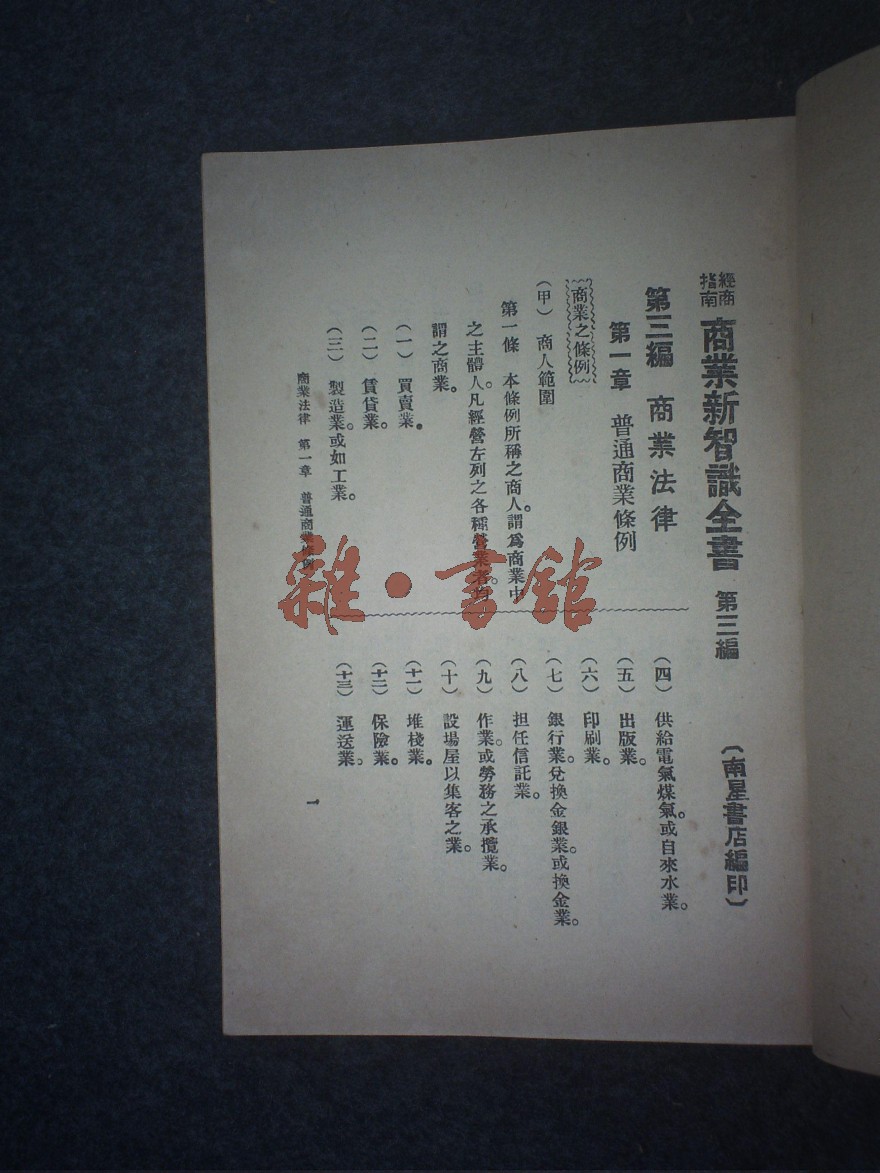 經商指南 商業新智識全書 第三編 （南星書店編印）
第三編 商業法律
第一章 普通商業條例
商業之條例
（甲） 商人範圍
第一條 本條例所稱之商人。謂爲商業中
之主體人。凡經營左列之各種營業者。均
謂之商業。
（一） 買賣業。
（二） 賃貸業。
（三） 製造業。或如工業。
（四） 供給電氣煤氣。或自來水業。
（五） 出版業。
（六） 印刷業。
（七） 銀行業。兌換金銀業。或換金業。
（八） 担任信託業。
（九） 作業。或勞務之承攬業。
（十） 設場屋以集客之業。
（十一） 堆棧業。
（十二） 保險業。
（十三） 運送業。
商業法律 第一章 普通商業條例
一
雜·書館